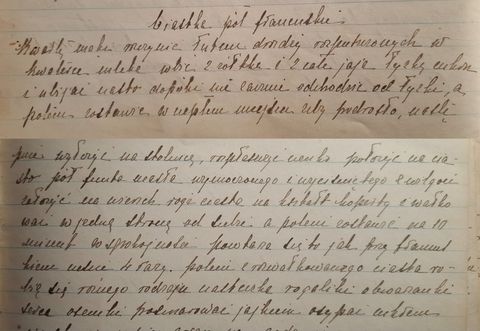 Ciastka pół francuskie.
Kwartę mąki rozczynić łutem drożdży rozpuszczonych w
kwaterce mleka wbić 2 żółtka i 2 całe jaja łyżkę cukru
i ubijać ciasto dopóki nie zacznie odchodzić od łyżki, a
potem zostawić w ciepłem miejscu żeby podrosło, nastę
pnie wyłożyć na stolnicę, rozpłaszczyć cienko położyć na cia-
sto pół funta masła wymoczonego i wyciśniętego z wilgoci
założyć na wierzch rogi ciasta na kształt koperty i wałko
wać w jedną stronę od siebie. a potem zostawić na 10
minut w spokojności powtarza się to jak przy francus
kiem cieście 4 razy. potem z rozwałkowanego ciasta ro-
bić się różnego rodzaju ciasteczka rogaliki obwarzanki
serca ósemki posmarować jajkiem osypać cukrem